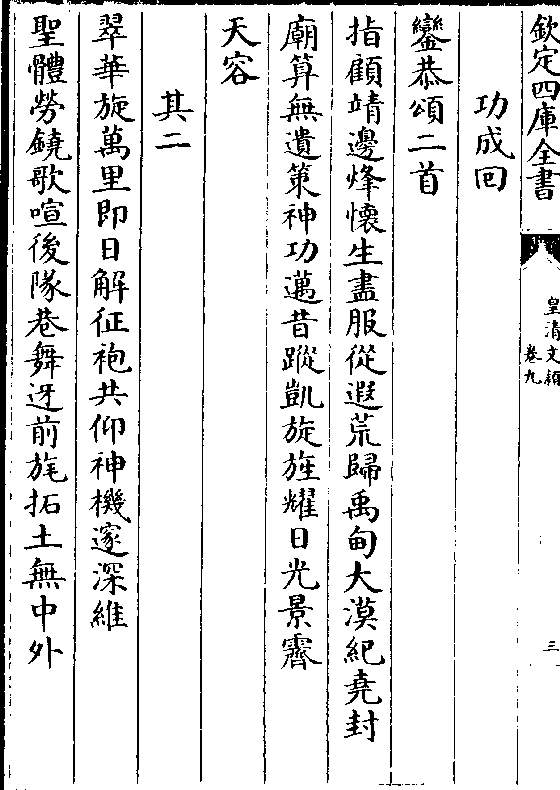 欽定四庫全書
皇清文穎
卷九
三
功成回
鑾恭頌二首
指顧靖邊烽懷生盡服從遐荒歸禹甸大漠紀堯封
廟算無遺策神功邁昔蹤凱旋旌耀日光景霽
天容
其二
翠華旋萬里即日解征袍共仰神機邃深維
聖體勞鐃歌喧後隊巷舞迓前旄拓土無中外